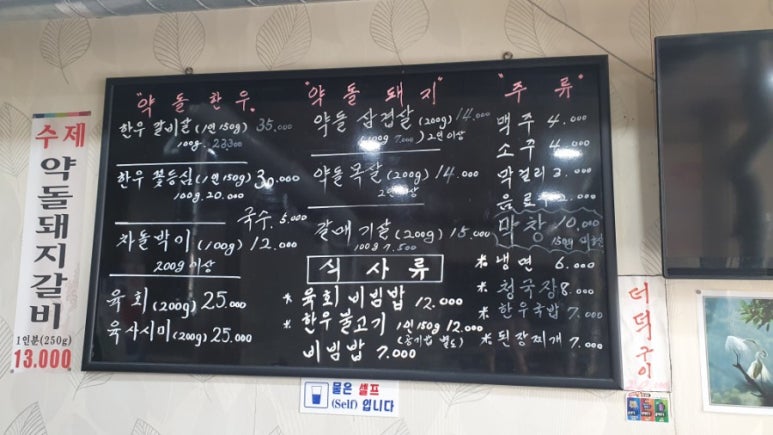 수제
약돌돼지갈비
1인분(250g)
13.000
"약 돌 한 우"
한우 갈비살(1인150g) 35.000
100g. 23300
한우 꽃등심(1인150g) 30.000
100g.20.000
국수. 5.000
차돌박이(100g) 12.000
200g이상
육회(200g) 25.000
육사시미(200g) 25.000
"약 돌 돼 지"
약돌 삼겹살(200g) 14.000
100g 7.000)2인이상
약돌 목살(200g) 14.000
갈매기살(200g) 15.000
100g 7.500
식 사 류
* 육회 비빔밥 12.000
* 한우불고기 1인150g 12.000
(공기밥 별도)
비빔밥 7.000
"주 류"
맥주 4.000
소주 4.000
막걸리 3.000
음료수 2.000
막창 10.000
* 냉면 6.000
* 청국장 8.000
* 한우국밥 7.000
* 된장찌개 7.000
더덕구이
물은 셀프
(Self) 입니다